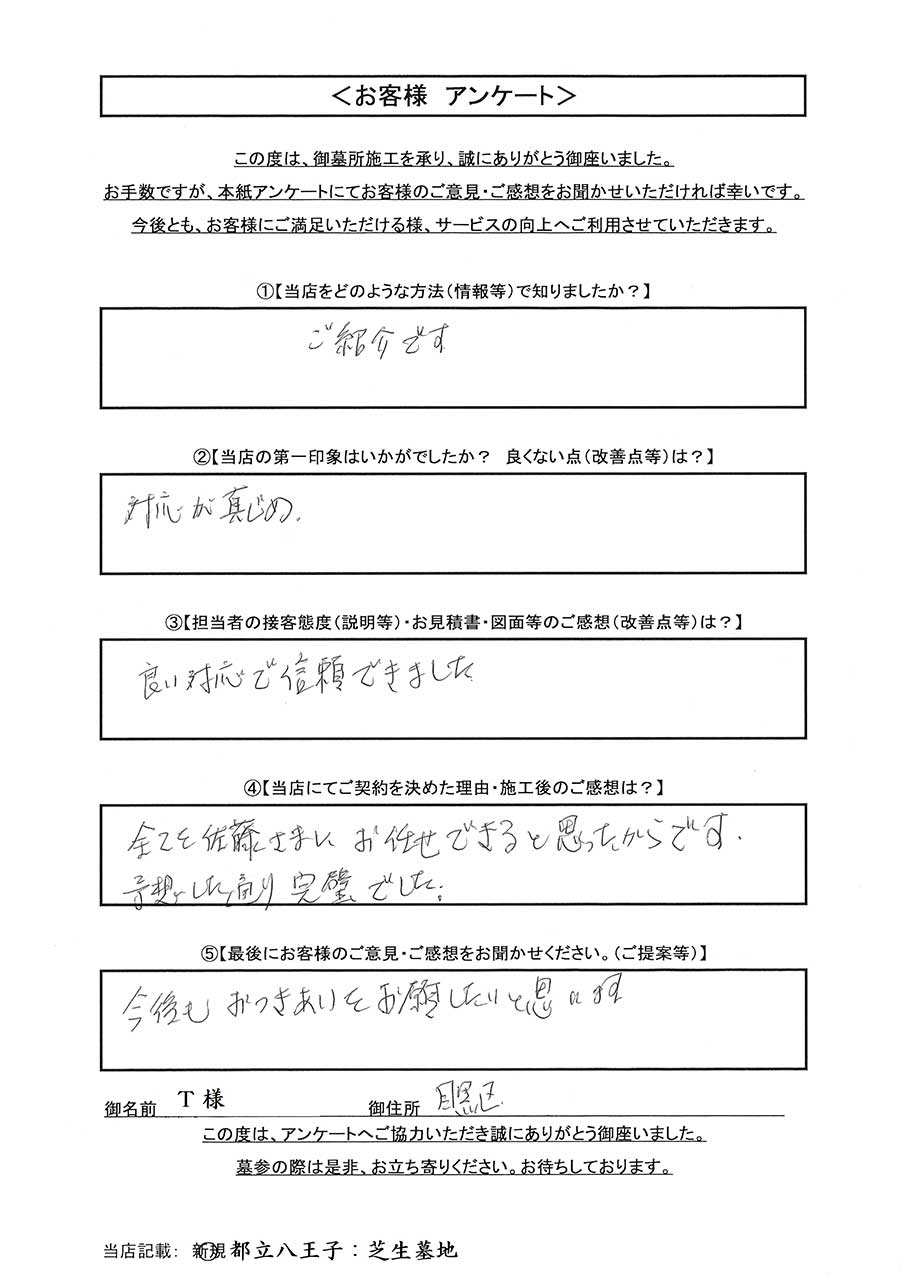 ＜お客様 アンケート＞
この度は、御墓所施工を承り、誠にありがとう御座いました。
お手数ですが、本紙アンケートにてお客様のご意見・ご感想をお聞かせいただければ幸いです。
今後とも、お客様にご満足いただける様、サービスの向上へご利用させていただきます。
①【当店をどのような方法（情報等）で知りましたか？】
ご紹介です
②【当店の第一印象はいかがでしたか？ 良くない点（改善点等）は？】
対応が真じめ.
③【担当者の接客態度（説明等）・お見積書・図面等のご感想（改善点等）は？】
良い対応で信頼できました
④【当店にてご契約を決めた理由・施工後のご感想は？】
全てを佐藤さまにお任せできると思ったからです.
予想した通り完璧でした.
⑤【最後にお客様のご意見・ご感想をお聞かせください。（ご提案等）】
今後もおつきあいをお願したいと思います
御名前 T 様 御住所 目黒区
この度は、アンケートへご協力いただき誠にありがとう御座いました。
墓参の際は是非、お立ち寄りください。お待ちしております。
当店記載： 新規 都立八王子：芝生墓地